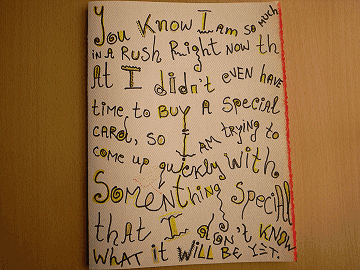 You Know I am so much
in A Rush Right now th
At I didn't even have
time to Buy A Special
card, so I am trying to
come up quickly With
Somenthing Special
that I don't Know
What it Will Be Yet.